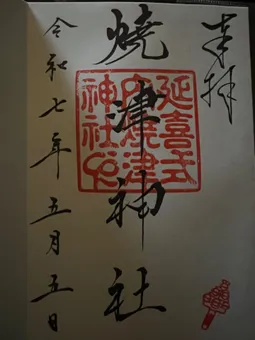 奉拝
延喜式
内焼津
神社
焼津神社
令和七年五月五日